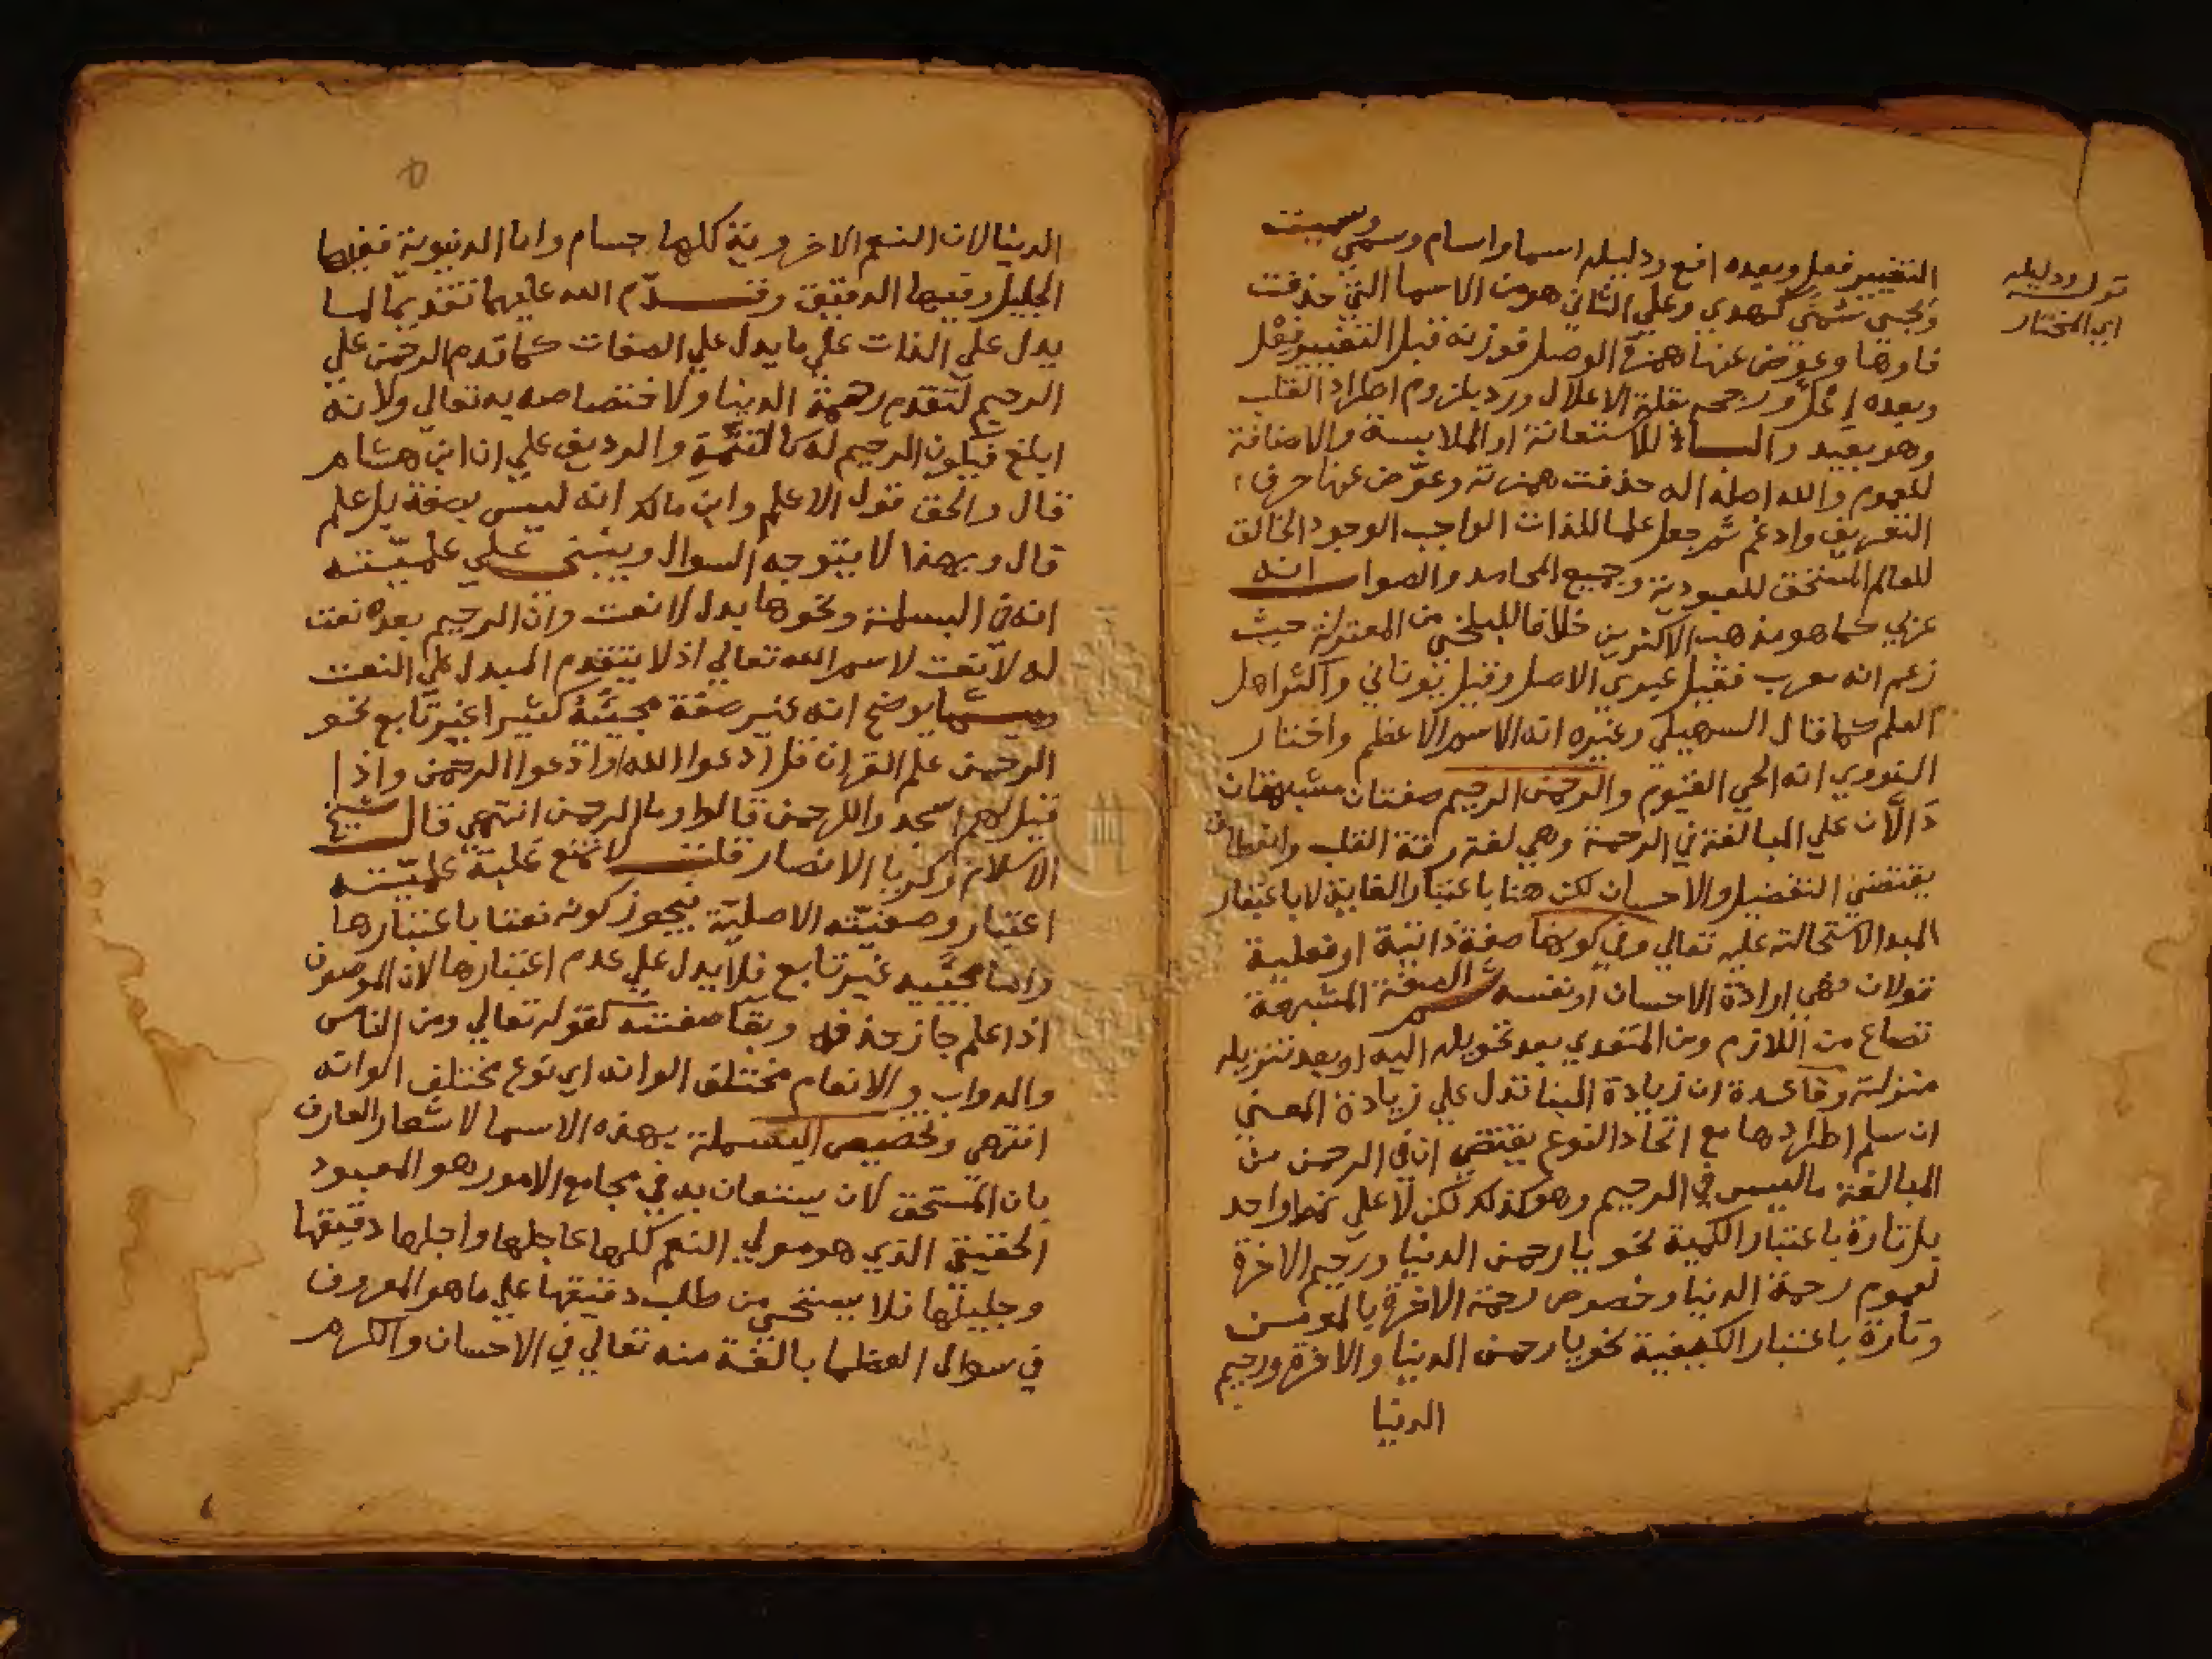 التغيير فعل وبعده افع ودليله اسما واسام وسمي وسميت
ومجي سمي كهدي وعلي الثاني هو من الاسما التي حذفت
فاوها وعوض عنها همزة الوصل فوزنه قبل التغيير فعل
وبعده اعل ورجح بقلة الاعلال ورد بلزوم اطراد القلب
وهو بعيد والباء للاستعانة او الملابسة والاضافة
للعموم والله اصله اله حذفت همزته وعوض عنها حرف
التعريف وادغم ثم جعل علما للذات الواجب الوجود الخالق
للعالم المستحق للعبودية وجميع المحامد والصواب انه
عربي كما هو مذهب الاكثرين خلافا للبلخي من المعتزلة حيث
زعم انه معرب فقيل عبري الاصل وقيل يوناني واكثر اهل
العلم كما قال السهيلي وغيره انه الاسم الاعظم واختار
النووي انه الحي القيوم والرحمن الرحيم صفتان مشبهتان
دالان علي المبالغة في الرحمة وهي لغة رقة القلب وانعطاف
يقتضي التفضيل والاحسان لكن هنا باعتبار الغاية لا باعتبار
المبدا لاستحالته عليه تعالي وفي كونها صفة ذاتية او فعلية
قولان فهي ارادة الاحسان او نفسه ثم الصفة المشبهة
تصاغ من اللازم ومن المتعدي بعد تحويله اليه او بعد تنزيله
منزلته وقاعدة ان زيادة البنا تدل علي زيادة المعني
ان سلم اطرادها مع اتحاد النوع يقتضي ان في الرحمن من
المبالغة ما ليس في الرحيم وهو كذلك لكن لا علي نمط واحد
بل تارة باعتبار الكمية نحو يا رحمن الدنيا ورحيم الاخرة
لعموم رحمة الدنيا وخصوص رحمة الاخرة بالمومنين
وتارة باعتبار الكيفية نحو يا رحمن الدنيا والاخرة ورحيم
الدنيا
قوله ودليله
اي المختار
الدنيا لان النعم الاخروية كلها جسام واما الدنيوية ففيها
الجليل وفيها الدقيق وقدم الله عليهما تقديما لما
يدل علي الذات علي ما يدل علي الصفات كما قدم الرحمن علي
الرحيم لتقدم رحمة الدنيا ولاختصاصه به تعالي ولانه
ابلغ فيكون الرحيم له كالتتمة والرديف علي ان ابن هشام
قال والحق قول الاعلم وابن مالك انه ليس بصفة بل علم
قال وبهذا لا يتوجه السوال ويبتني علي علميته
انه في البسملة ونحوها بدل لا نعت وان الرحيم بعده نعت
له لا نعت لاسم الله تعالي اذ لا يتقدم البدل علي النعت
ومما يوضح انه غير صفة مجيئه كثيرا غير تابع نحو
الرحمن علم القران قل ادعوا الله او ادعوا الرحمن واذا
قيل لهم اسجدوا للرحمن قالوا وما الرحمن انتهي قال شيخ
الاسلام زكريا الانصار قلت لا تمنع غلبة علميته
اعتبار وصفيته الاصلية فيجوز كونه نعتا باعتبارها
واما مجيئه غير تابع فلا يدل علي عدم اعتبارها لان الموصوف
اذا علم جاز حذفه وبقا صفته كقوله تعالي ومن الناس
والدواب والانعام مختلف الوانه اي نوع مختلف الوانه
انتهي وتخصيص البسملة بهذه الاسما لاشعار العارف
بان المستحق لان يستعان به في مجامع الامور هو المعبود
الحقيقي الذي هو مولي النعم كلها عاجلها واجلها دقيقها
وجليلها فلا يستحي من طلب دقيقها علي ما هو المعروف
في سوال العظما بالغة منه تعالي في الاحسان والكرم